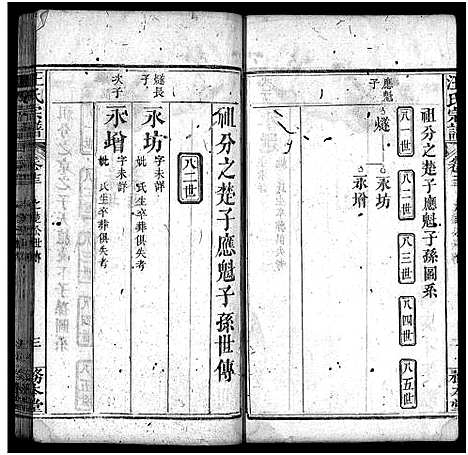 汪氏宗譜
祖分之楚子應魁子孫圖系
八一世
八二世
八三世
八四世
八五世
應魁子
燧
永坊
永增
祖分之楚子應魁子孫世傳
八二世
燧長子
永坊
字未詳
妣 氏生卒葬俱失考
次子
永增
字未詳
妣 氏生卒葬俱失考
汪氏宗譜
三
務本堂